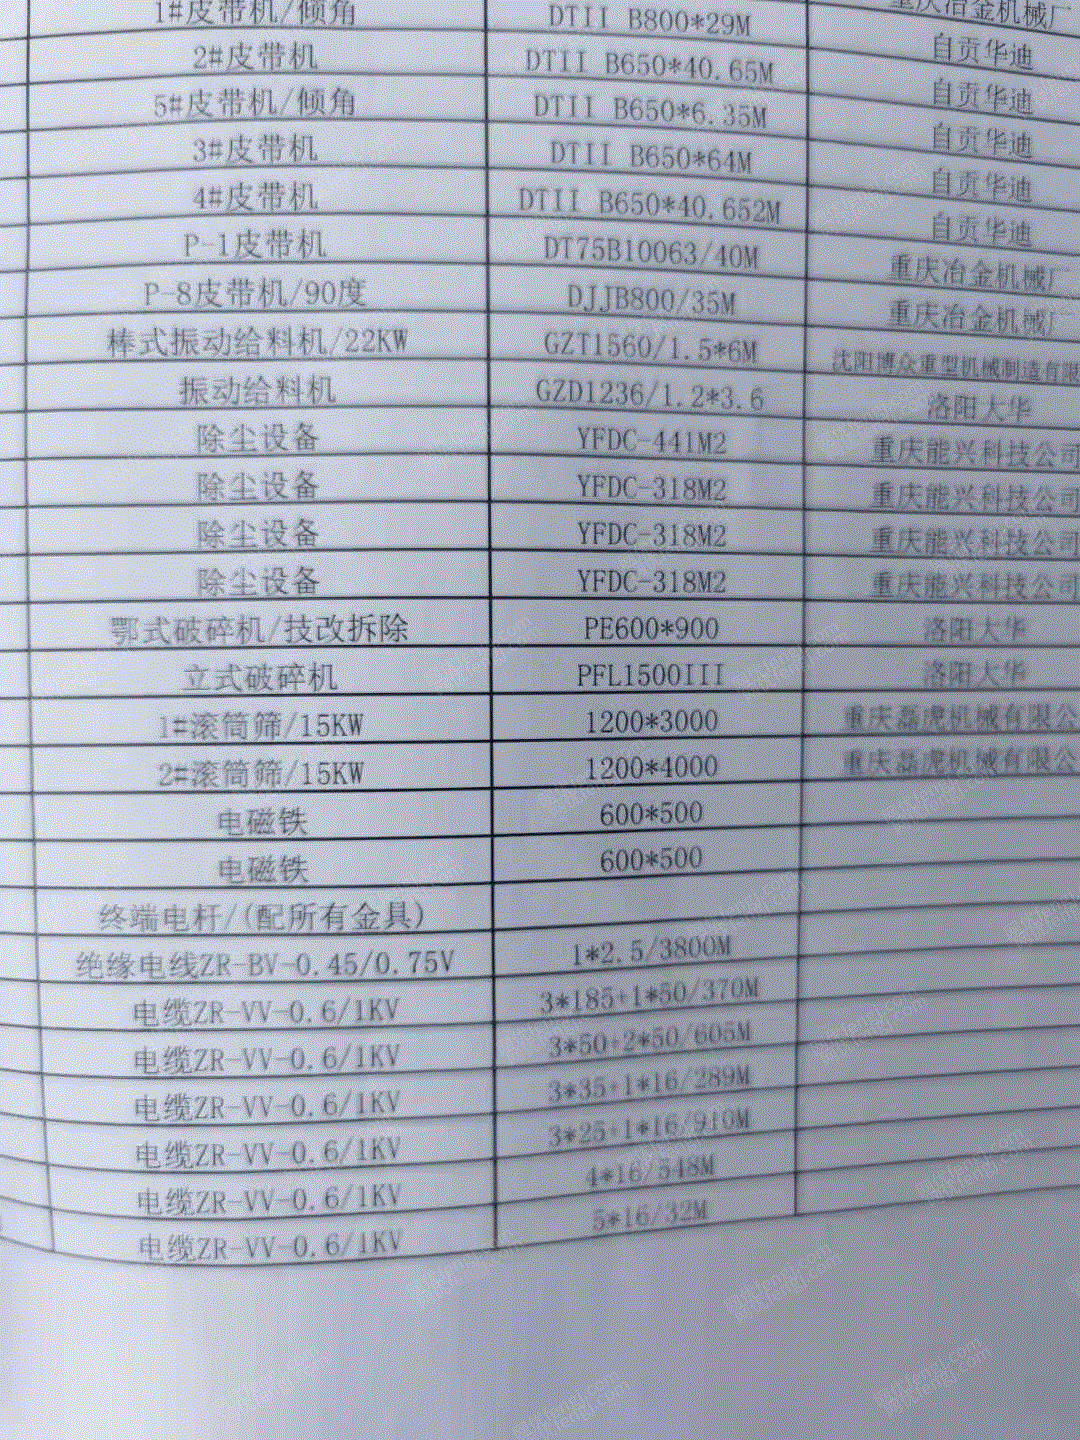 1#皮带机/倾角 DTII B800*29M 重庆冶金机械厂
2#皮带机 DTII B650*40.65M 自贡华迪
5#皮带机/倾角 DTII B650*6.35M 自贡华迪
3#皮带机 DTII B650*64M 自贡华迪
4#皮带机 DTII B650*40.652M 自贡华迪
P-1皮带机 DT75B10063/40M 自贡华迪
P-8皮带机/90度 DJJB800/35M 重庆冶金机械厂
棒式振动给料机/22KW GZT1560/1.5*6M 重庆冶金机械厂
振动给料机 GZD1236/1.2*3.6 沈阳博众重型机械制造有限
除尘设备 YFDC-441M2 洛阳大华
除尘设备 YFDC-318M2 重庆能兴科技公司
除尘设备 YFDC-318M2 重庆能兴科技公司
除尘设备 YFDC-318M2 重庆能兴科技公司
鄂式破碎机/技改拆除 PE600*900 重庆能兴科技公司
立式破碎机 PFL1500III 洛阳大华
1#滚筒筛/15KW 1200*3000 洛阳大华
2#滚筒筛/15KW 1200*4000 重庆磊虎机械有限公
电磁铁 600*500 重庆磊虎机械有限公
电磁铁 600*500
终端电杆/(配所有金具)
绝缘电线ZR-BV-0.45/0.75V 1*2.5/3800M
电缆ZR-VV-0.6/1KV 3*185+1*50/370M
电缆ZR-VV-0.6/1KV 3*50+2*50/605M
电缆ZR-VV-0.6/1KV 3*35+1*16/289M
电缆ZR-VV-0.6/1KV 3*25+1*16/910M
电缆ZR-VV-0.6/1KV 4*16/548M
电缆ZR-VV-0.6/1KV 5*16/32M